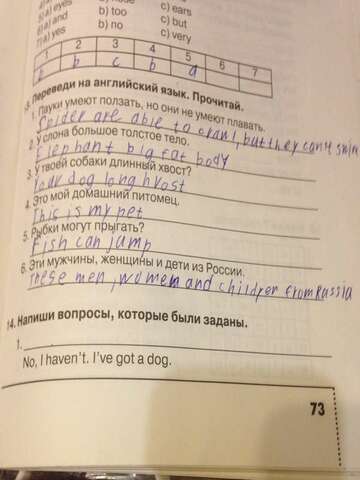 4) a)
5) a) eyes
6) a) and
7) a) yes
b) too
b) no
c) ears
c) but
c) very
1 2 3 4 5 6 7
b b c b a
Переведи на английский язык. Прочитай.
1. Пауки умеют ползать, но они не умеют плавать.
Spider are able to crawl, but they can't swim
2. У слона большое толстое тело.
Elephant big fat body
3. У твоей собаки длинный хвост?
Your dog long hvost
4. Это мой домашний питомец.
This is my pet
5. Рыбки могут прыгать?
Fish can jump
6. Эти мужчины, женщины и дети из России.
These men, women and children from Russia
14. Напиши вопросы, которые были заданы.
1.
No, I haven't. I've got a dog.
73